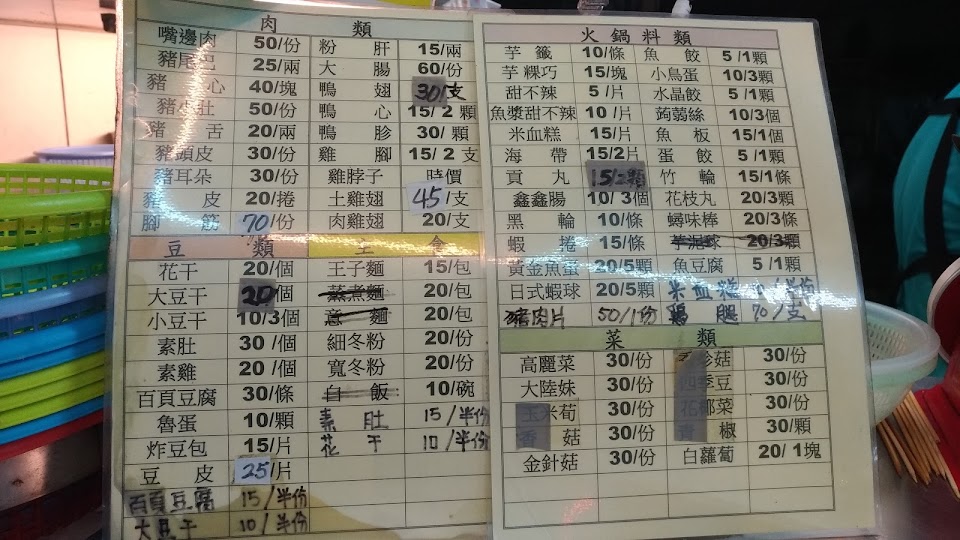 肉 類
嘴邊肉 50/份 粉肝 15/兩
豬尾巴 25/兩 大腸 60/份
豬心 40/塊 鴨翅 30/支
豬小肚 50/份 鴨心 15/2顆
豬舌 20/兩 鴨胗 30/顆
豬頭皮 30/份 雞腳 15/2支
豬耳朵 30/份 雞脖子 時價
豬皮 20/捲 土雞翅 45/支
腳筋 70/份 肉雞翅 20/支
豆 類 主 食
花干 20/個 王子麵 15/包
大豆干 20/個 蒸煮麵 20/包
小豆干 10/3個 意麵 20/包
素肚 30/個 細冬粉 20/份
素雞 20/個 寬冬粉 20/份
百頁豆腐 30/條 白飯 10/碗
魯蛋 10/顆 素肚 15/半份
炸豆包 15/片 花干 10/半份
豆皮 25/片
百頁豆腐 15/半份
大豆干 10/半份
火鍋料類
芋籤 10/條 魚餃 5/1顆
芋粿巧 15/塊 小鳥蛋 10/3顆
甜不辣 5/片 水晶餃 5/1顆
魚漿甜不辣 10/片 蒟蒻絲 10/3個
米血糕 15/片 魚板 15/1個
海帶 15/2片 蛋餃 5/1顆
貢丸 15/2顆 竹輪 15/1條
鑫鑫腸 10/3個 花枝丸 20/3顆
黑輪 10/條 蟳味棒 20/3條
蝦捲 15/條 芋泥球 20/3顆
黃金魚蛋 20/5顆 魚豆腐 5/1顆
日式蝦球 20/5顆 米血糕 /半份
豬肉片 50/1份 雞腿 70/支
菜 類
高麗菜 30/份 珍菇 30/份
大陸妹 30/份 四季豆 30/份
玉米筍 30/份 花椰菜 30/份
香菇 30/份 青椒 30/顆
金針菇 30/份 白蘿蔔 20/1塊